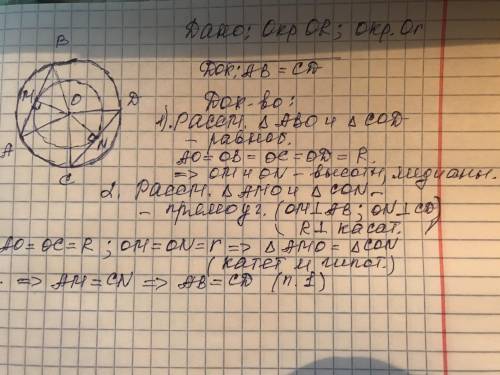 Дано; Окр OR; Окр. Or
Док; AB = CD
Док-во:
1). Рассм. △ ABO и △ COD
- равноб.
AO = OB = OC = OD = R.
=> OM и ON - высоты, медианы.
2. Рассм. △ AMO и △ CON -
- прямоуг. (OM⊥AB; ON⊥CD)
(R⊥ касат.
AO = OC = R; OM = ON = r => △ AMO = △ CON
(катет и гипот.)
. => AM = CN => AB = CD (п. 1)
B
M
O
D
A
N
C